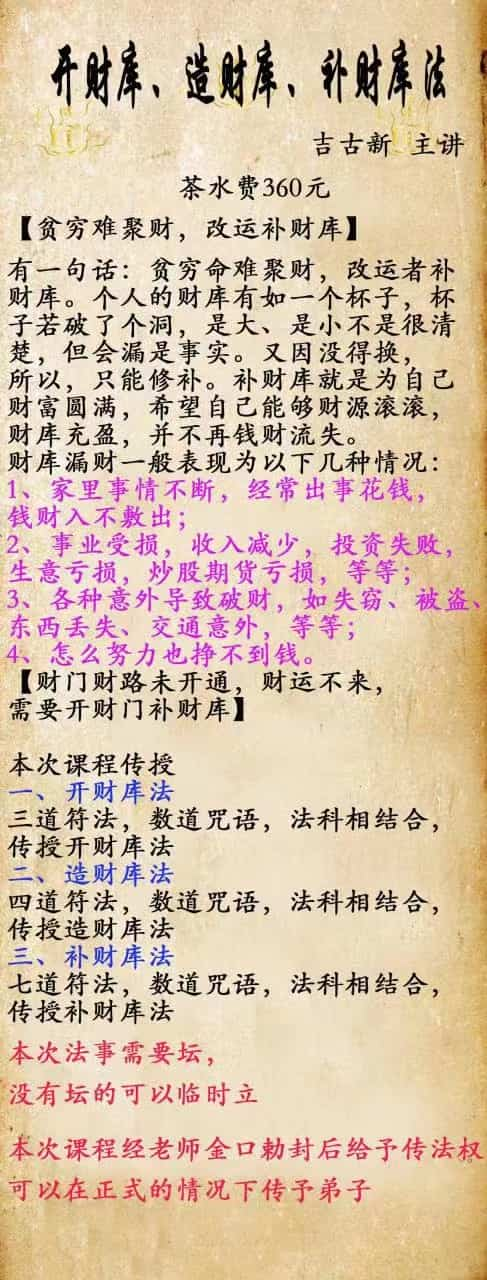 开财库、造财库、补财库法
吉古新 主讲
茶水费360元
【贫穷难聚财，改运补财库】
有一句话：贫穷命难聚财，改运者补
财库。个人的财库有如一个杯子，杯
子若破了个洞，是大、是小不是很清
楚，但会漏是事实。又因没得换，
所以，只能修补。补财库就是为自己
财富圆满，希望自己能够财源滚滚，
财库充盈，并不再钱财流失。
财库漏财一般表现为以下几种情况：
1、家里事情不断，经常出事花钱，
钱财入不敷出；
2、事业受损，收入减少，投资失败，
生意亏损，炒股期货亏损，等等；
3、各种意外导致破财，如失窃、被盗、
东西丢失、交通意外，等等；
4、怎么努力也挣不到钱。
【财门财路未开通，财运不来，
需要开财门补财库】
本次课程传授
一、开财库法
三道符法，数道咒语，法科相结合，
传授开财库法
二、造财库法
四道符法，数道咒语，法科相结合，
传授造财库法
三、补财库法
七道符法，数道咒语，法科相结合，
传授补财库法
本次法事需要坛，
没有坛的可以临时立
本次课程经老师金口勅封后给予传法权。
可以在正式的情况下传予弟子